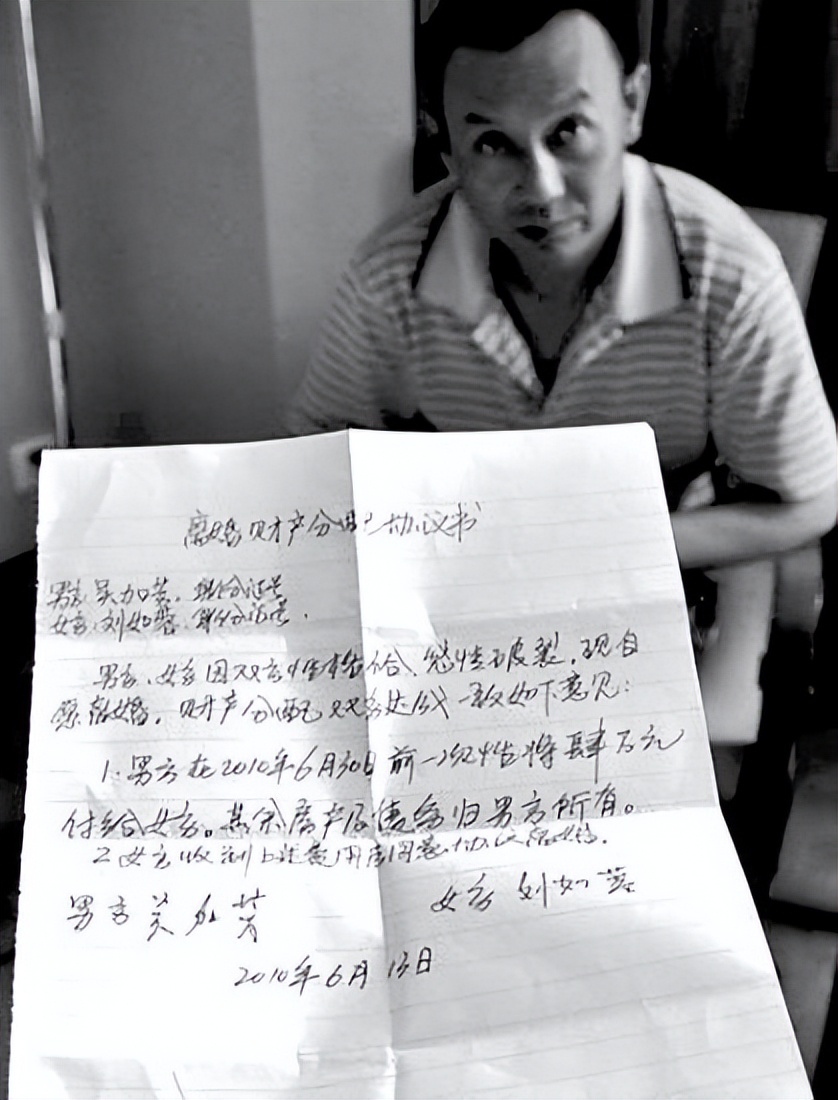 离婚财产分配协议书
男方 吴加芳. 身份证号
女方. 刘如蓉. 身份证号.
男方、女方因双方性格不合、感情破裂,现自
愿离婚,财产分配双方达成一致如下意见:
1. 男方在2010年6月30日前一次性将肆万元
付给女方。其余房产及债务归男方所有。
2 女方收到上述费用后同意协议离婚.
男方 吴加芳 女方 刘如蓉
2010年6月13日